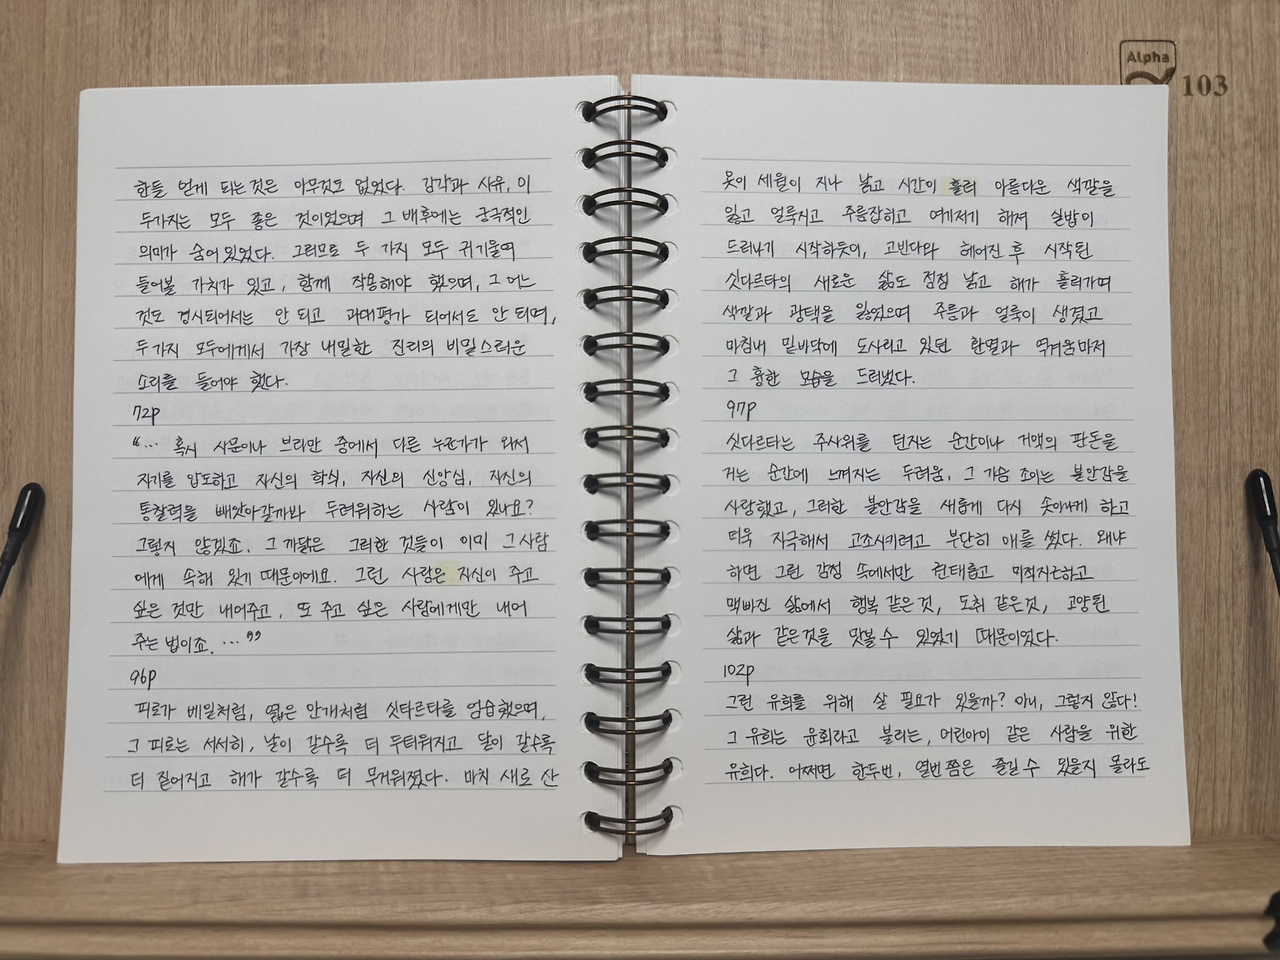 함들 얻게 되는 것은 아무것도 없었다. 감각과 사유, 이
두가지는 모두 좋은 것이었으며 그 배후에는 궁극적인
의미가 숨어 있었다. 그러므로 두 가지 모두 귀 기울여
들어볼 가치가 있고, 함께 작용해야 했으며, 그 어느
것도 경시되어서는 안 되고 과대평가 되어서도 안 되며,
두 가지 모두에게서 가장 내밀한 진리의 비밀스러운
소리를 들어야 했다.
72p
“… 혹시 사문이나 브라만 중에서 다른 누군가가 와서
자기를 압도하고 자신의 학식, 자신의 신앙심, 자신의
통찰력을 빼앗아갈까봐 두려워하는 사람이 있나요?
그렇지 않겠죠. 그 까닭은 그러한 것들이 이미 그 사람
에게 속해 있기 때문이에요. 그런 사람은 자신이 주고
싶은 것만 내어주고, 또 주고 싶은 사람에게만 내어
주는 법이죠. …”
96p
피로가 베일처럼, 엷은 안개처럼 싯타르타를 엄습했으며,
그 피로는 서서히, 날이 갈수록 더 두터워지고 달이 갈수록
더 짙어지고 해가 갈수록 더 무거워졌다. 마치 새로 산
옷이 세월이 지나 낡고 시간이 흘러 아름다운 색깔을
잃고 얼룩지고 주름잡히고 여기저기 해져 실밥이
드러나기 시작하듯이, 고빈다와 헤어진 후 시작된
싯다르타의 새로운 삶도 점점 낡고 해가 흘러가며
색깔과 광택을 잃었으며 주름과 얼룩이 생겼고
마침내 밑바닥에 도사리고 있던 환멸과 역겨움마저
그 흉한 모습을 드러냈다.
97p
싯다르타는 주사위를 던지는 순간이나 거액의 판돈을
거는 순간에 느껴지는 두려움, 그 가슴 조이는 불안감을
사랑했고, 그러한 불안감을 새롭게 다시 솟아나게 하고
더욱 지극해서 고조시키려고 부단히 애를 썼다. 왜냐
하면 그런 감정 속에서만 권태롭고 미적지근하고
맥빠진 삶에서 행복 같은 것, 도취 같은 것, 고양된
삶과 같은 것을 맛볼 수 있었기 때문이었다.
102p
그런 유희를 위해 살 필요가 있을까? 아니, 그렇지 않다!
그 유희는 윤회라고 불리는, 어린아이 같은 사람을 위한
유희다. 어쩌면 한두번, 열번쯤은 즐길 수 있을지 몰라도
Alpha
103